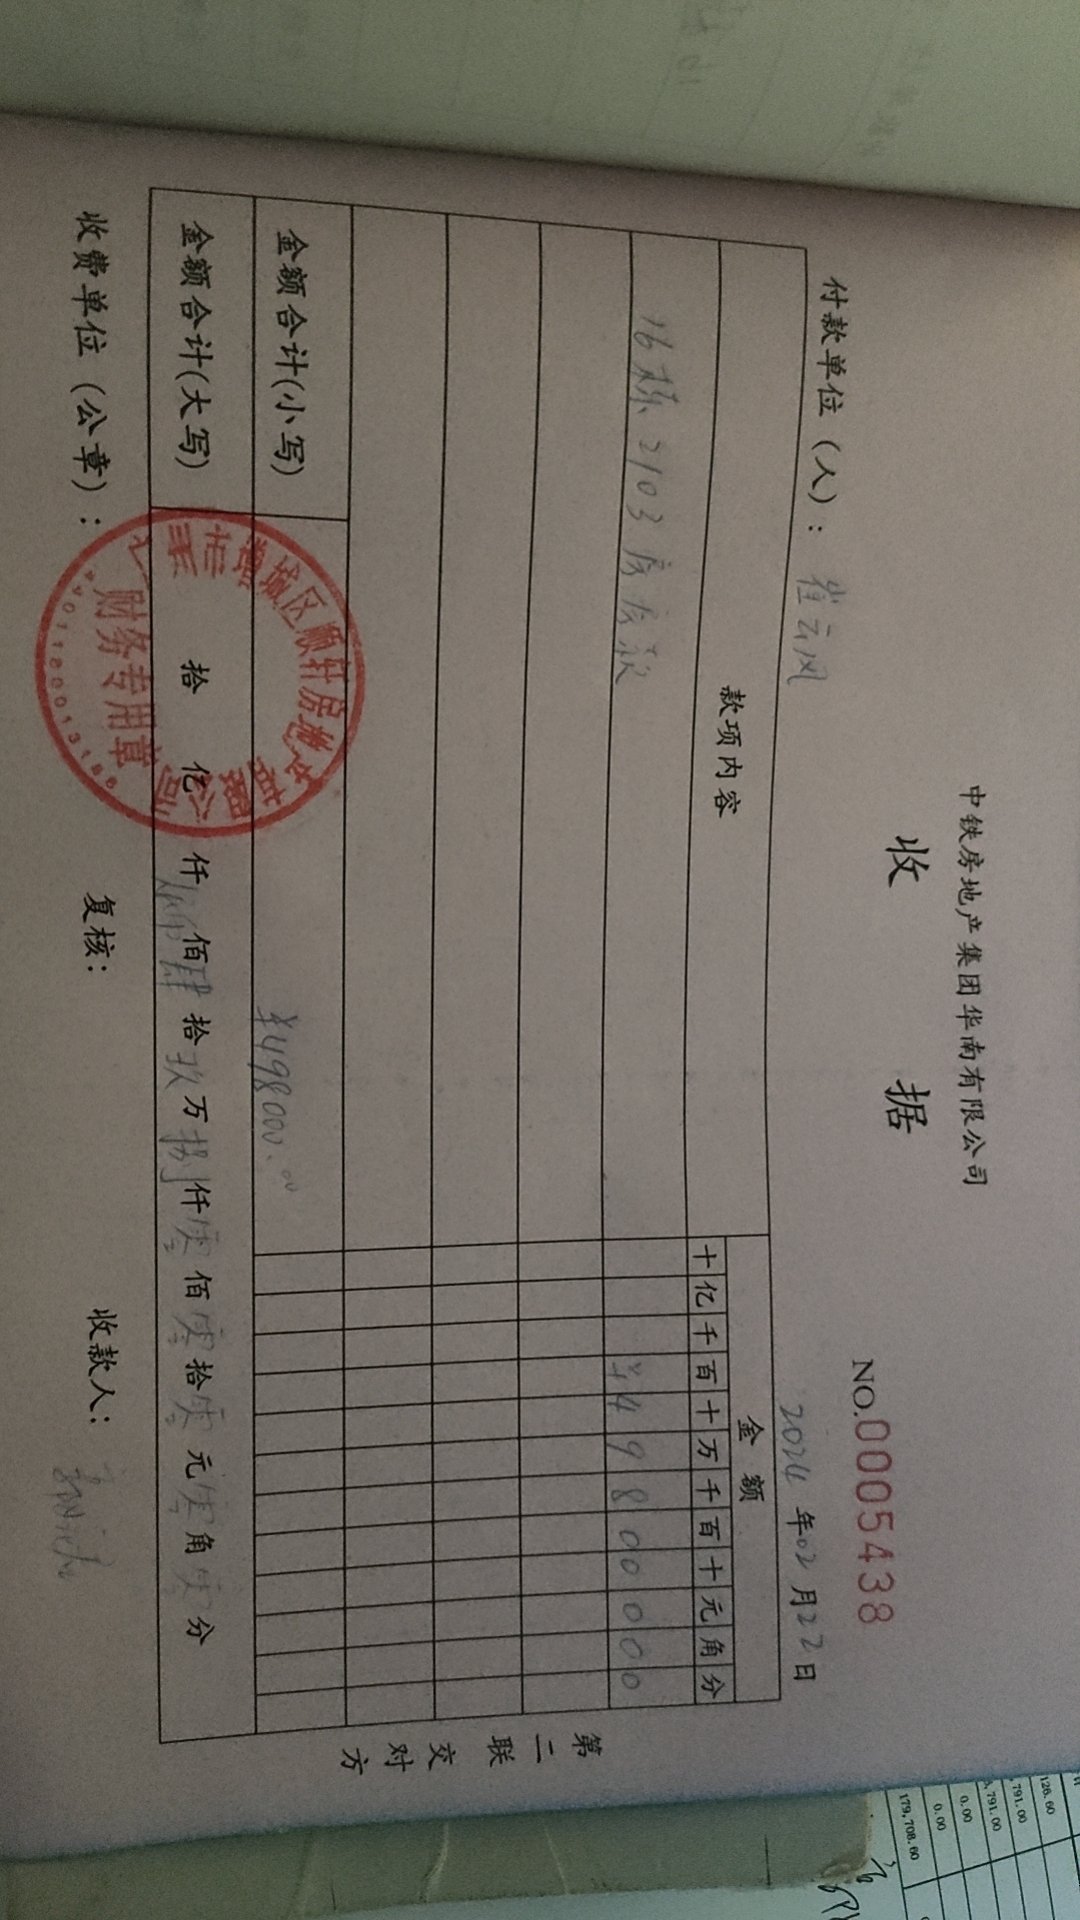 中铁房地产集团华南有限公司
收 据
NO.0005438
付款单位（人）：崔云风
2024年02月22日
款项内容
金 额
十亿千百十万千百十元角分
16栋2103房房款
¥49800000
金额合计(小写)
¥498000.00
金额合计(大写)
拾 亿 仟 佰肆拾玖万捌仟零佰零拾零元零角零分
收费单位（公章）：
复核：
收款人：
第二联交对方
增城区顺轩房地
公司
财务专用章
179,708.60
0.00
0.00
791.00
791.00
126.60